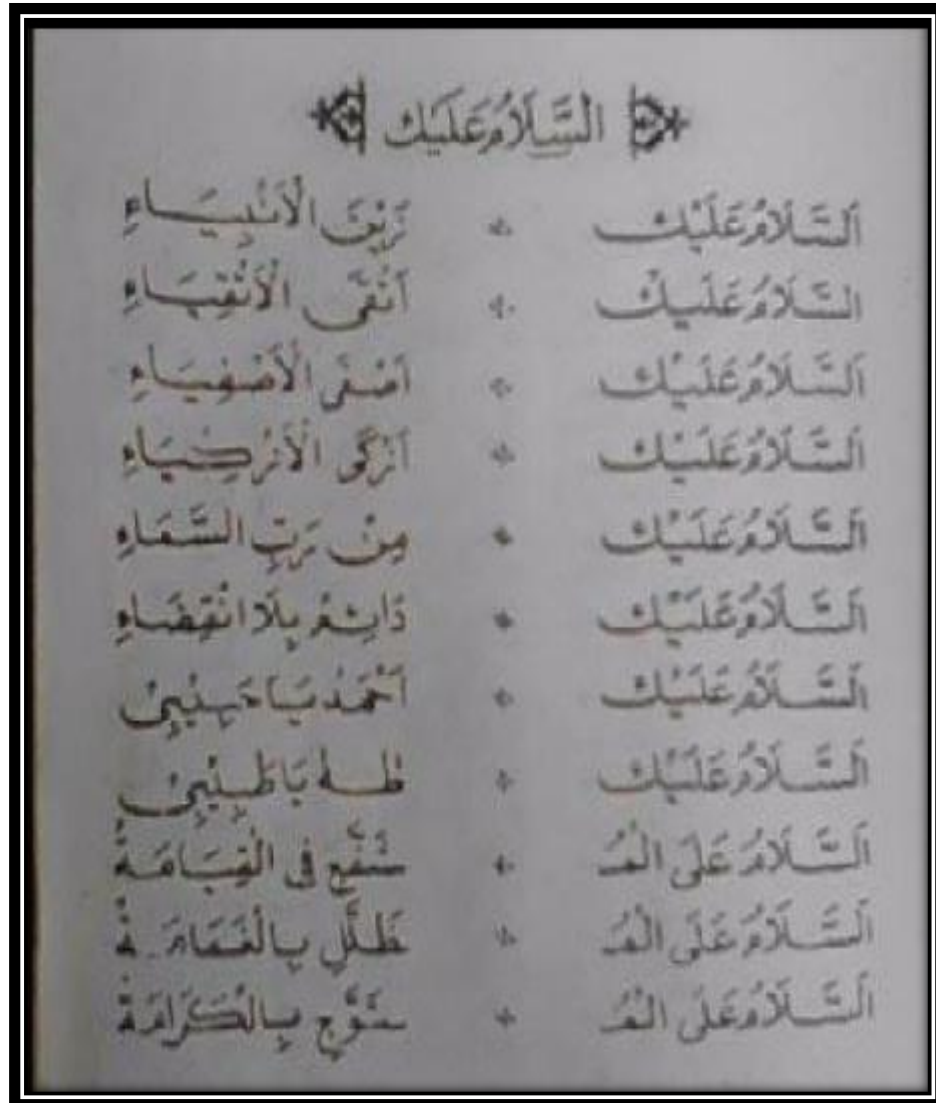 السَّلَامُ عَلَيْك
اَلسَّلَامُ عَلَيْك زَيْنَ الْاَنْبِيَاءِ
اَلسَّلَامُ عَلَيْك اَتْقَى الْاَتْقِيَاءِ
اَلسَّلَامُ عَلَيْك اَصْفَى الْاَصْفِيَاءِ
اَلسَّلَامُ عَلَيْك اَزْكَى الْاَزْكِيَاءِ
اَلسَّلَامُ عَلَيْك مِنْ رَبِّ السَّمَاءِ
اَلسَّلَامُ عَلَيْك دَائِمُ بِلَا انْقِضَاءِ
اَلسَّلَامُ عَلَيْك اَحْمَدُ يَاحَبِيْبِيْ
اَلسَّلَامُ عَلَيْك طٰهٰ يَاطَبِيْبِيْ
اَلسَّلَامُ عَلَى الْمُـ ـشَفَّعِ فِى الْقِيَامَةْ
اَلسَّلَامُ عَلَى الْمُـ ـظَلَّلِ بِالْغَمَامَةْ
اَلسَّلَامُ عَلَى الْمُـ ـتَوَّجِ بِالْكَرَامَةْ